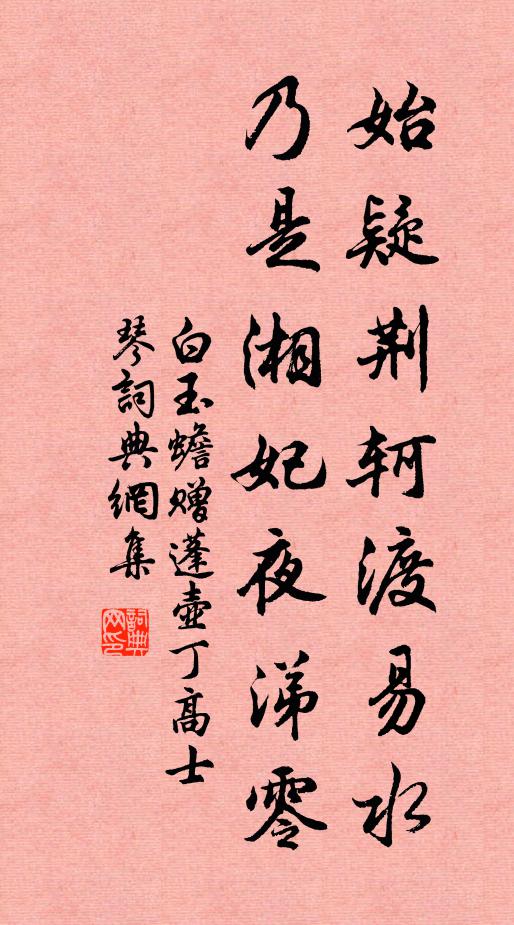 始疑荆轲渡易水
乃是湘妃夜涕零
白玉蟾赠蓬壶丁高士
琴詞典網集
詞典
网印